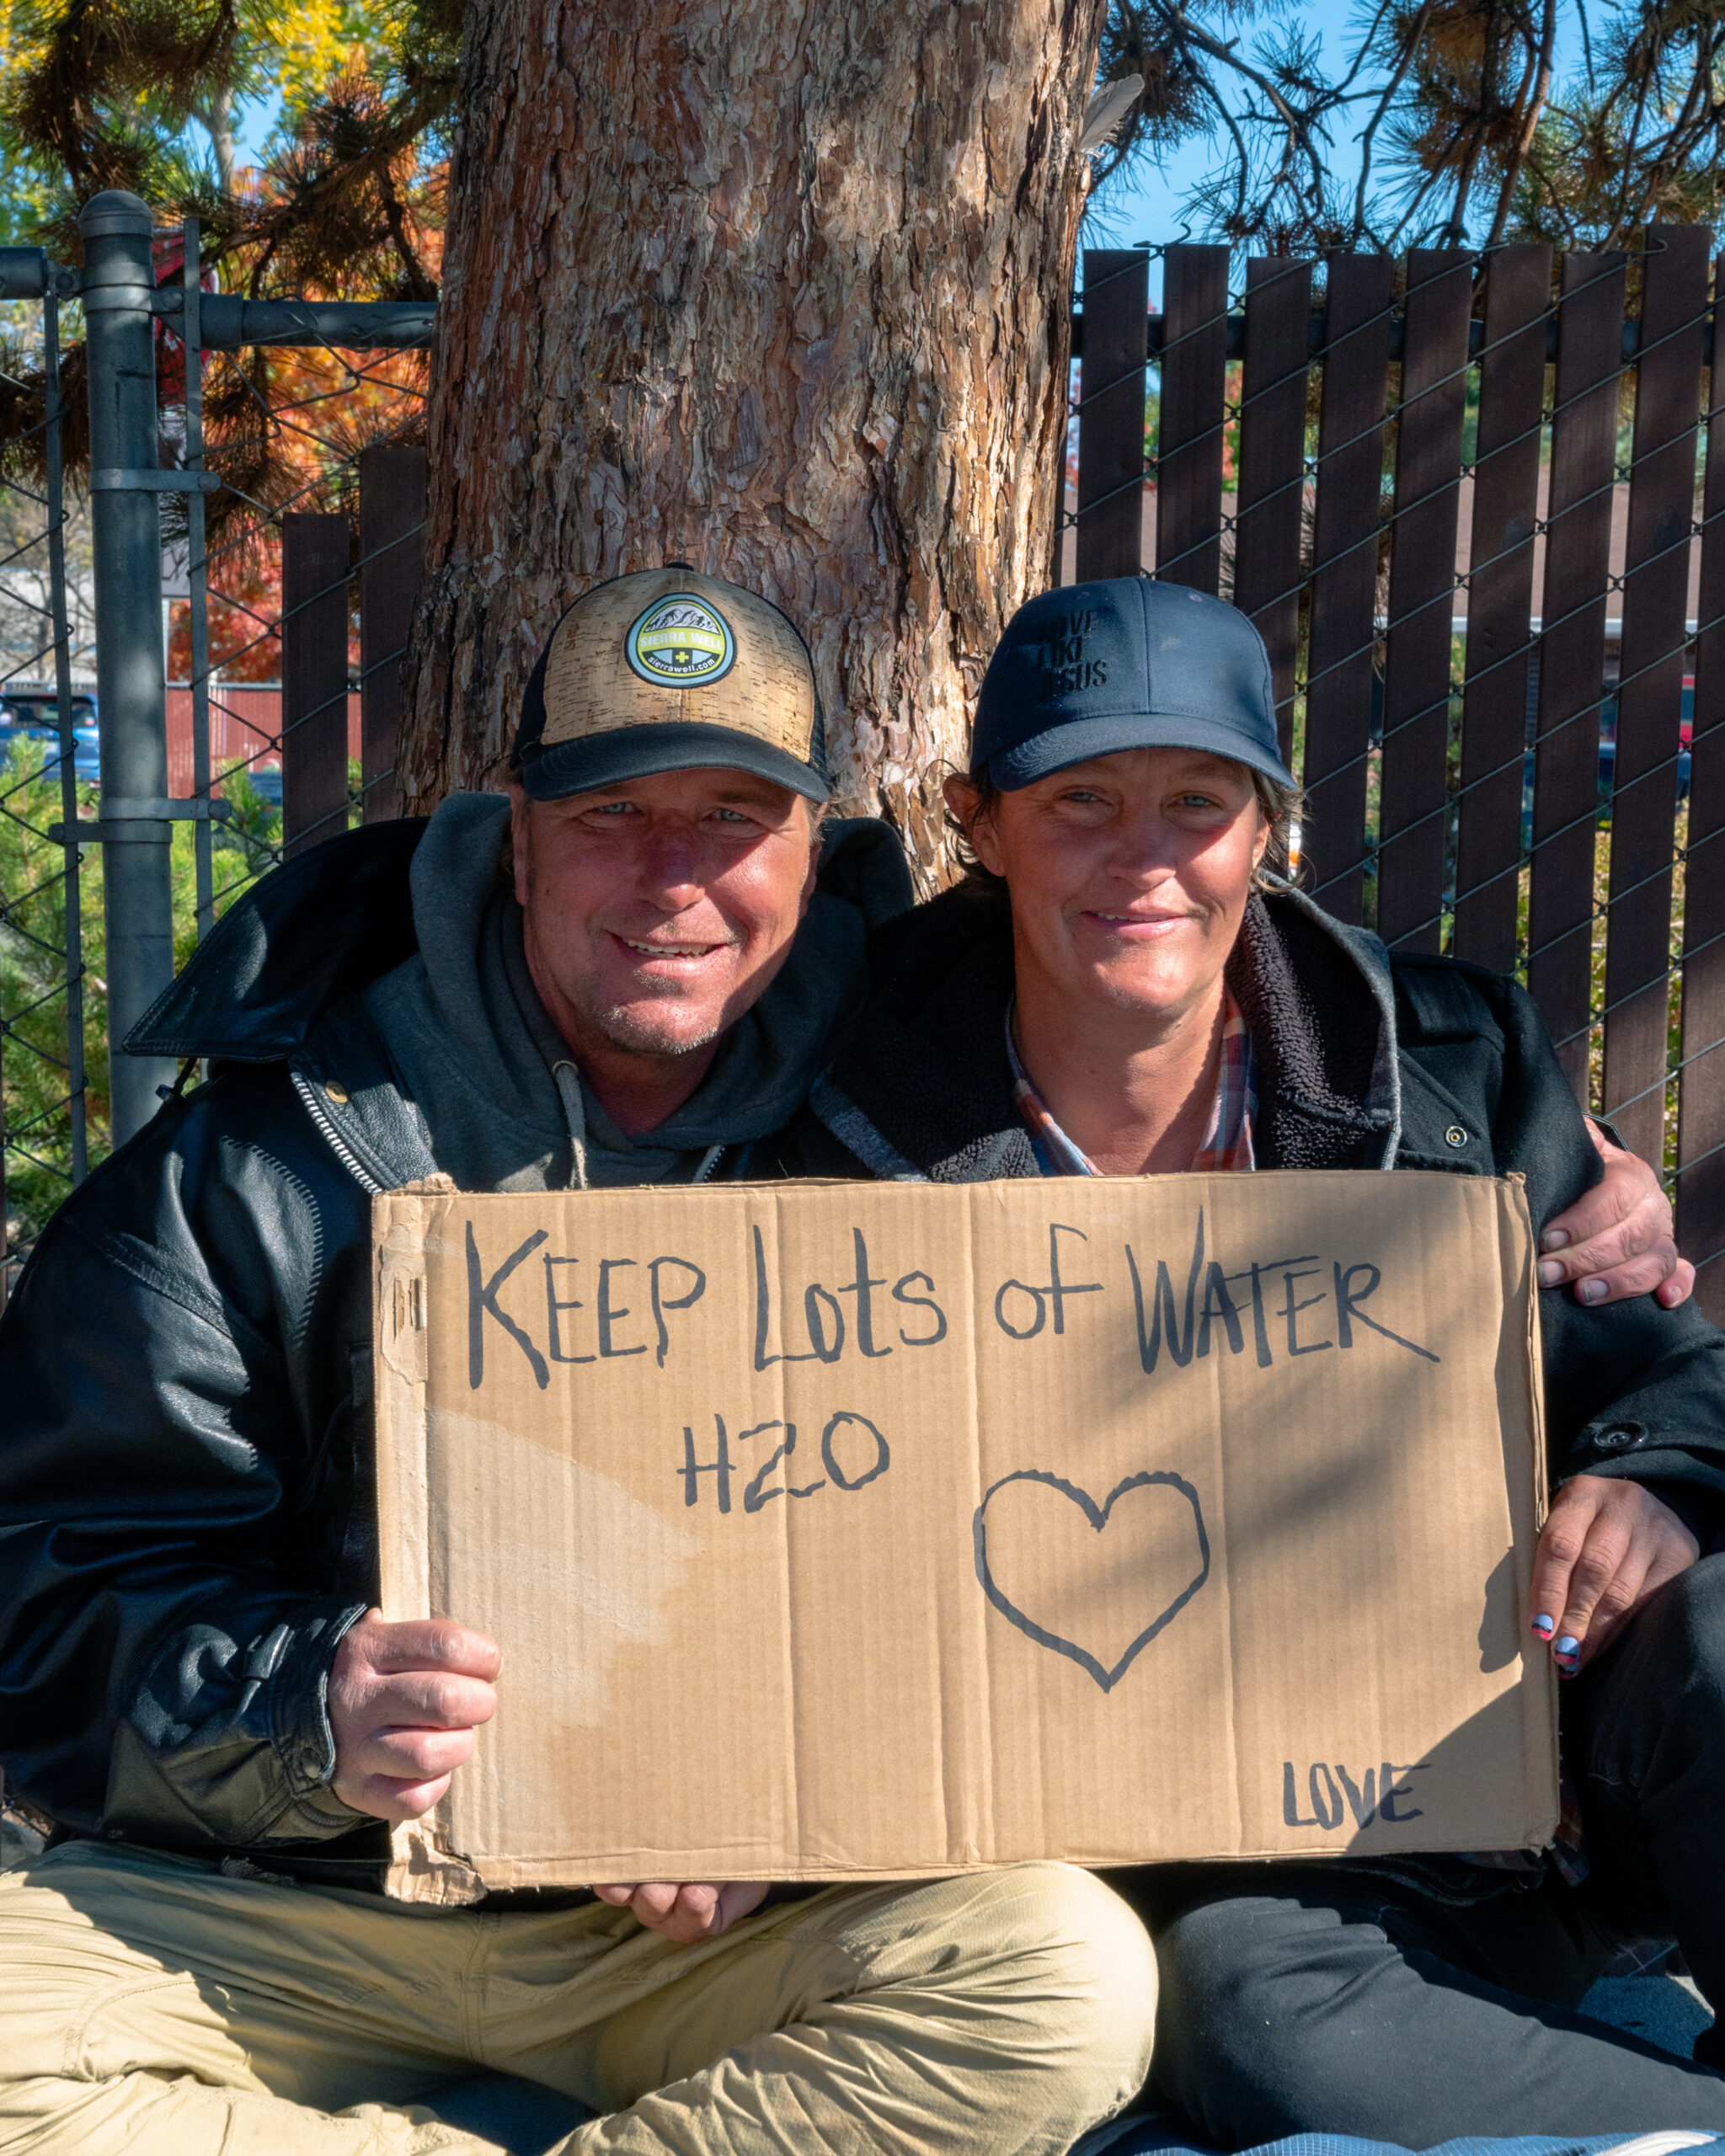 SIERRA WELL
sierrawell.com
LOVE
LIKE
JESUS
KEEP Lots of WATER
H2O
LOVE